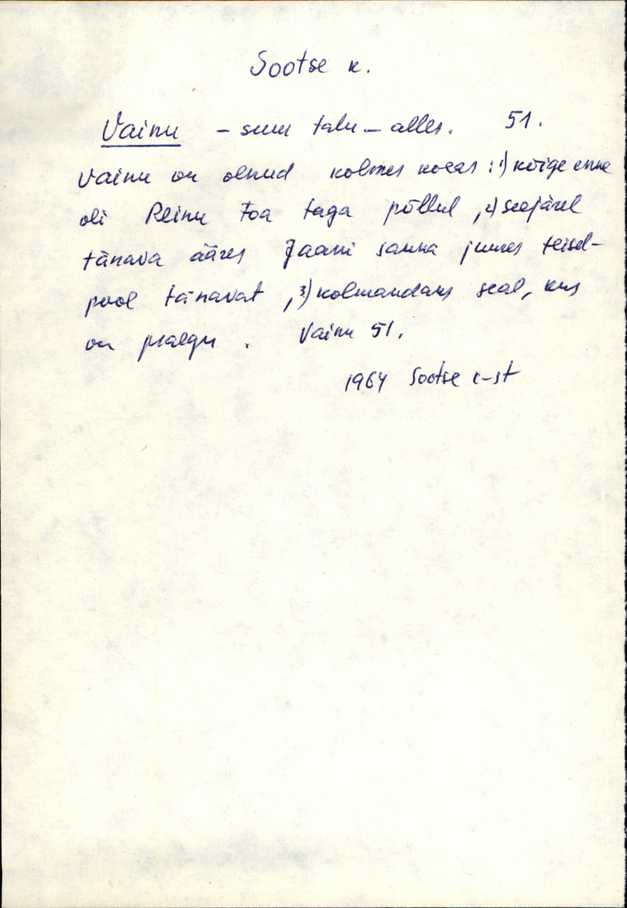 Sootse k.
Vainu – suur talu – alles. 51.
Vainu on olnud kolmes kohas: 1) kõige enne
oli Reinu Toa taga põllul, 2) seejärel
tänava ääres Jaani sauna juures teisel-
pool tänavat, 3) kolmandaks seal, kus
on praegu. Vainu 51.
1964 Sootse k-st